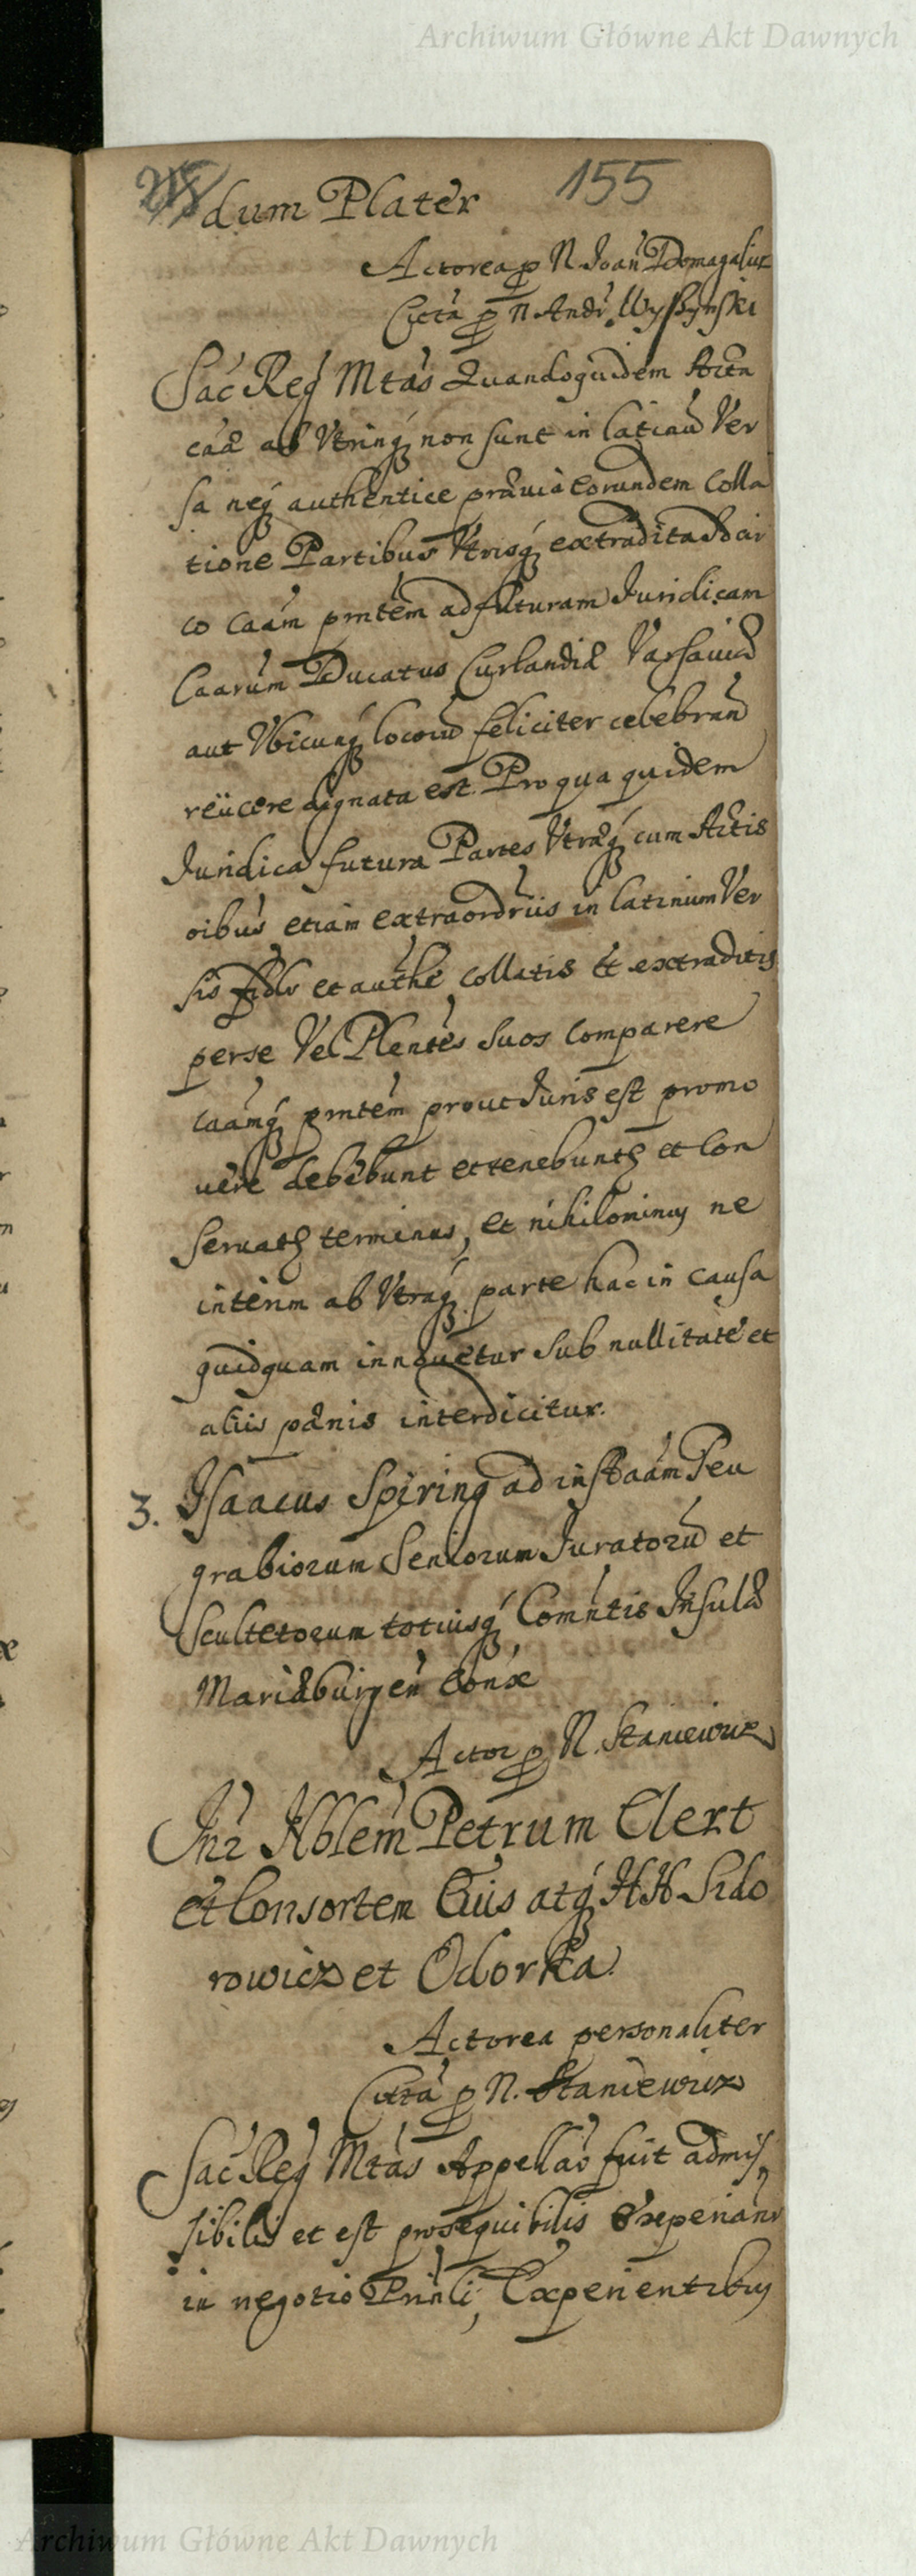 Archiwum Główne Akt Dawnych
155
dum Plater
Actorea p N Joań Domagalicz
Citta p N Andr Wyszynski
Sac Reg Mtas Quandoquidem Acta
caȧ ab Utrinq non sunt in latinū Ver
sa neq authentice prævia eorundem Colla
tione Partibus Utrisq extradita Idcir
co caam pntem ad futuram Juridicam
Caarum Ducatus Curlandiæ Varsaviæ
aut Ubicunq locorū feliciter celebran
reiicere dignata est. Pro qua quidem
Juridica futura Partes Utraq cum Actis
oibus etiam extraordriis in latinum Ver
sis et authe collatis et extraditis
per se Vel Plentes Suos Comparere
caamq pntem prout Juris est promo
vere debebunt et tenebuntr et Con
servatr terminus, et nihilominus ne
interim ab Utraq parte hac in causa
quidquam innovetur Sub nullitate et
aliis pænis interdicitur.
3. Isaacus Spiring ad instaam Peu
grabiorum Seniorum Juratorū et
Scultetorum totiusq Commtis Insulæ
Mariæburgen Conæ
Actor p N. Staniewicz
Inr Nblem Petrum Clert
et Consortem Eius atq NN Sido
rowicz et Odorka
Actorea personaliter
Citta p N. Staniewicz
Sac Reg Mtas Appellao fuit admis
sibilis et est prosequibilis Experiantr
in negotio Prinli, Experientibus
Archiwum Główne Akt Dawnych